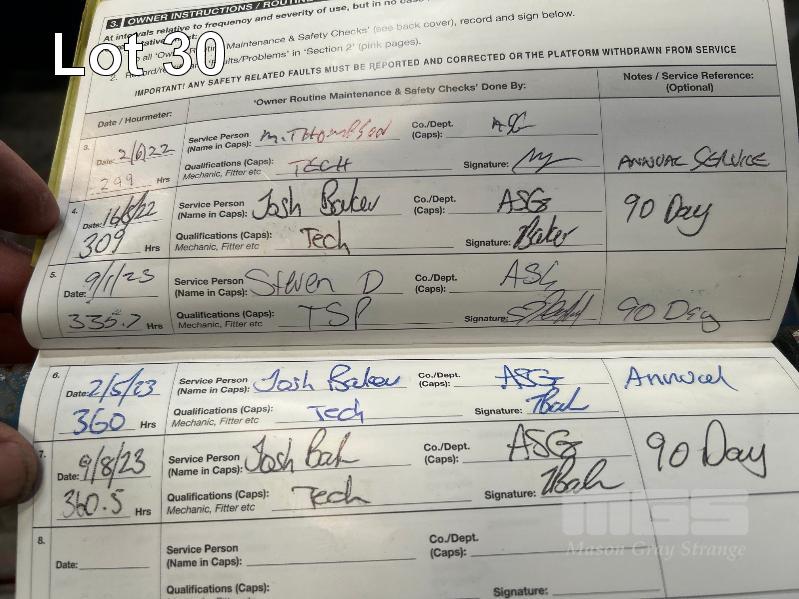 3. OWNER INSTRUCTIONS / ROUTIN
At intervals relative to frequency and severity of use, but in no case
Lot 30
all 'Owner Routine Maintenance & Safety Checks' (see back cover), record and sign below.
2. Record/ Faults/Problems' in 'Section 2' (pink pages).
IMPORTANT! ANY SAFETY RELATED FAULTS MUST BE REPORTED AND CORRECTED OR THE PLATFORM WITHDRAWN FROM SERVICE
Date / Hourmeter: 'Owner Routine Maintenance & Safety Checks' Done By: Notes / Service Reference: (Optional)
3.
Date: 2/6/22 Service Person (Name in Caps): M. THOMPSON Co./Dept. (Caps): ASG
299 Hrs Qualifications (Caps): TECH Signature: ANNUAL SERVICE
Mechanic, Fitter etc
4.
Date: 16/8/22 Service Person (Name in Caps): Josh Baker Co./Dept. (Caps): ASG 90 Day
309 Hrs Qualifications (Caps): Tech Signature: Baker
Mechanic, Fitter etc
5.
Date: 9/1/23 Service Person (Name in Caps): Steven D Co./Dept. (Caps): ASG
335.7 Hrs Qualifications (Caps): TSP Signature: 90 Day
Mechanic, Fitter etc
6.
Date: 2/5/23 Service Person (Name in Caps): Josh Baker Co./Dept. (Caps): ASG Annual
360 Hrs Qualifications (Caps): Tech Signature:
Mechanic, Fitter etc
7.
Date: 9/8/23 Service Person (Name in Caps): Josh Bak Co./Dept. (Caps): ASG 90 Day
360.5 Hrs Qualifications (Caps): Tech Signature:
Mechanic, Fitter etc
MGS
Mason Gray Strange
8.
Date: Service Person (Name in Caps): Co./Dept. (Caps):
Qualifications (Caps): Signature: